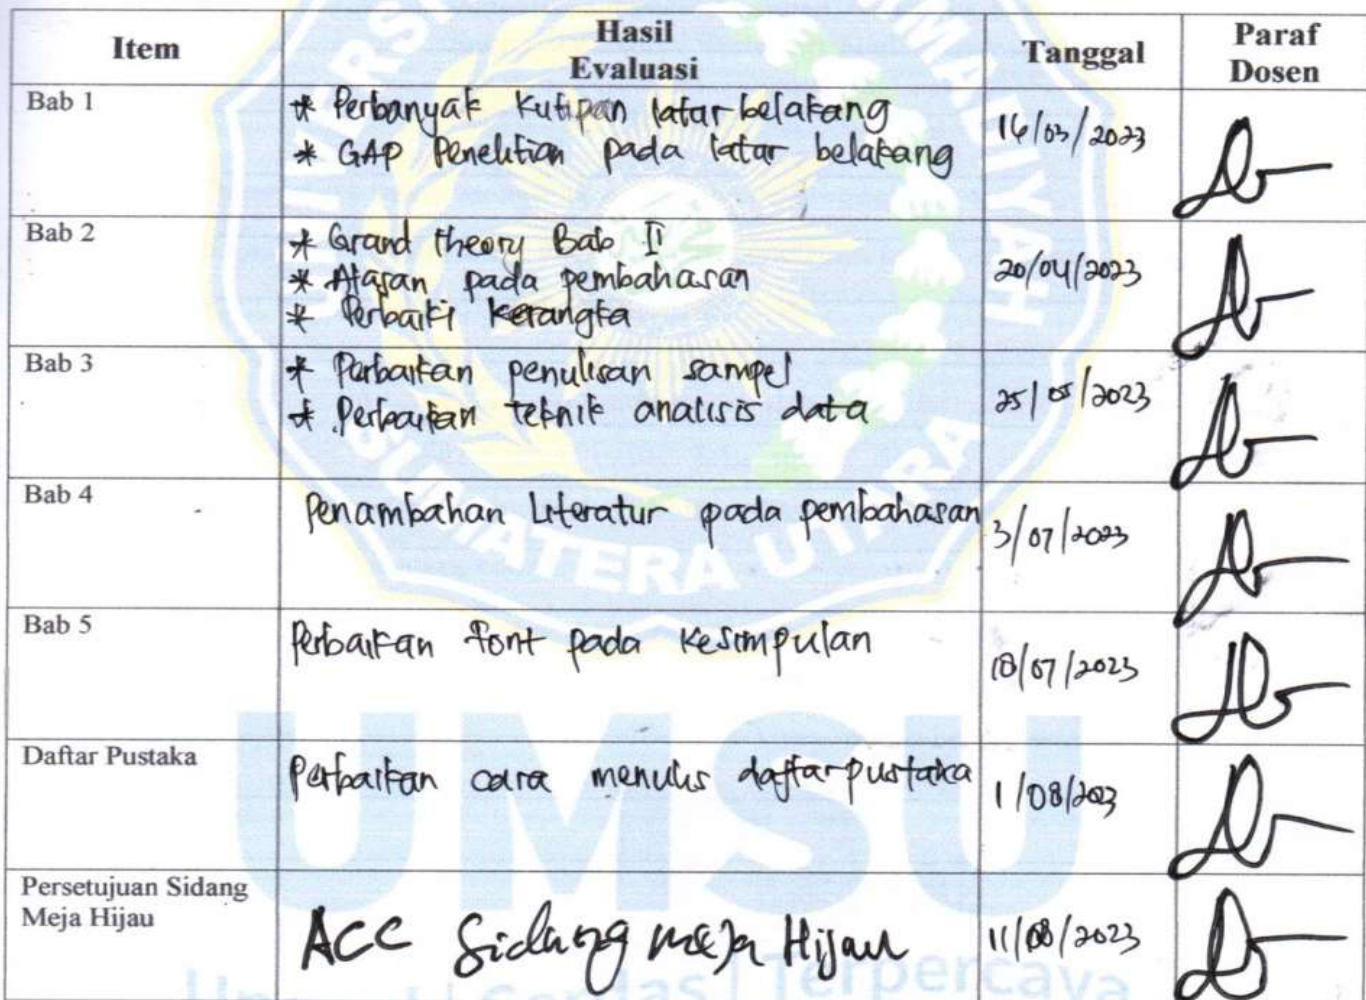 Item
Hasil
Evaluasi
Tanggal
Paraf
Dosen
Bab 1
* Perbanyak kutipan latar belakang
* GAP Penelitian pada latar belakang
16/03/2023
Bab 2
* Grand theory Bab II
* Atasan pada pembahasan
* Perbaiki kerangka
20/04/2023
Bab 3
* Perbaikan penulisan sampel
* Perbaikan teknik analisis data
25/05/2023
Bab 4
Penambahan Literatur pada pembahasan
3/07/2023
Bab 5
Perbaikan font pada Kesimpulan
18/07/2023
Daftar Pustaka
Perbaikan cara menulis daftar pustaka
1/08/2023
Persetujuan Sidang
Meja Hijau
ACC Sidang meja Hijau
11/08/2023
SUMATERA UTARA
UMSU
Unggul | Cerdas | Terpercaya